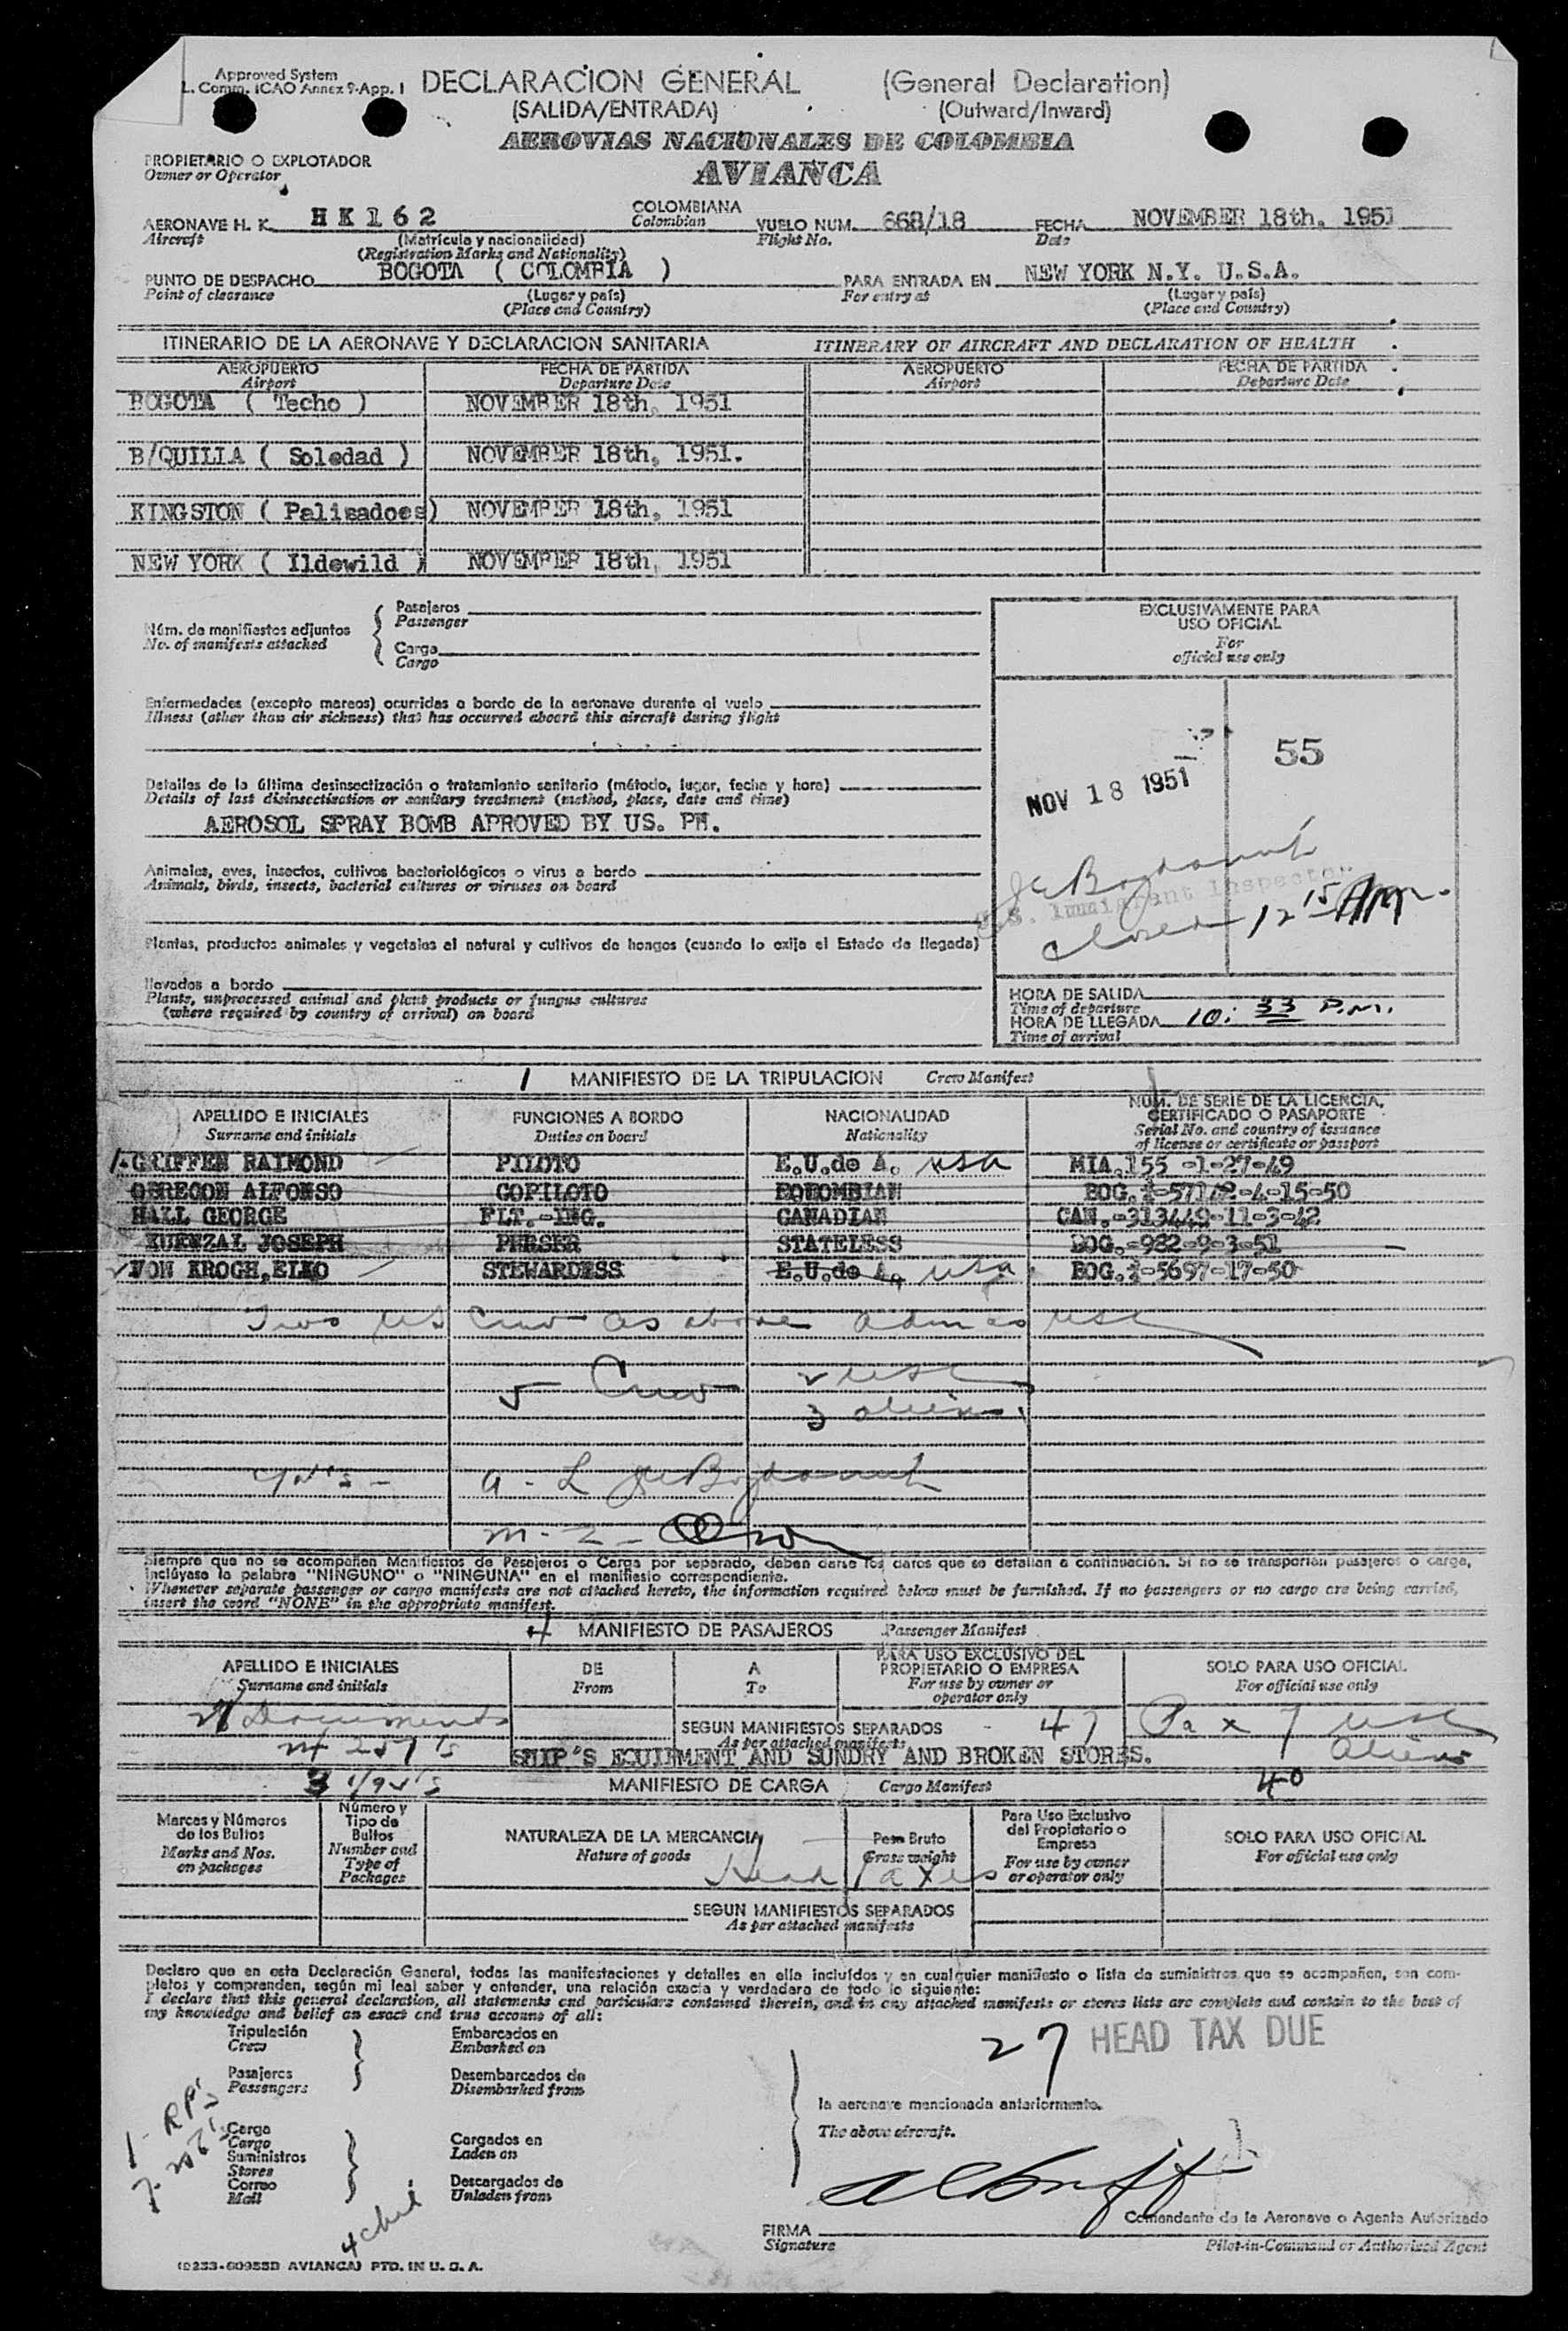 Approved System DECLARACION GENERAL (General Declaration)
L. Comm. ICAO Annex 9-App. I
(SALIDA/ENTRADA) (Outward/Inward)
AEROVIAS NACIONALES DE COLOMBIA
PROPIETARIO O EXPLOTADOR
Owner or Operator
AVIANCA
AERONAVE H. K. HK162 COLOMBIANA VUELO NUM. 668/18 FECHA NOVEMBER 18th, 1951
Aircraft (Matrícula y nacionalidad) Colombian Flight No. Date
(Registration Marks and Nationality)
PUNTO DE DESPACHO BOGOTA ( COLOMBIA ) PARA ENTRADA EN NEW YORK N.Y. U.S.A.
Point of clearance (Lugar y país) For entry at (Lugar y país)
(Place and Country) (Place and Country)
ITINERARIO DE LA AERONAVE Y DECLARACION SANITARIA ITINERARY OF AIRCRAFT AND DECLARATION OF HEALTH
AEROPUERTO FECHA DE PARTIDA AEROPUERTO FECHA DE PARTIDA
Airport Departure Date Airport Departure Date
BOGOTA ( Techo ) NOVEMBER 18th, 1951
B/QUILLA ( Soledad ) NOVEMBER 18th, 1951.
KINGSTON ( Palisadoes) NOVEMBER 18th, 1951
NEW YORK ( Ildewild ) NOVEMBER 18th, 1951
Núm. de manifiestos adjuntos
No. of manifests attached
Pasajeros
Passenger
Carga
Cargo
EXCLUSIVAMENTE PARA
USO OFICIAL
For
official use only
Enfermedades (excepto mareos) ocurridas a bordo de la aeronave durante el vuelo
Illness (other than air sickness) that has occurred aboard this aircraft during flight
55
NOV 18 1951
Detalles de la última desinsectización o tratamiento sanitario (método, lugar, fecha y hora)
Details of last disinsectisation or sanitary treatment (method, place, date and time)
AEROSOL SPRAY BOMB APROVED BY US. PH.
Animales, aves, insectos, cultivos bacteriológicos o virus a bordo
Animals, birds, insects, bacterial cultures or viruses on board
U.S. Immigrant Inspector
Closed 12 15 AM.
Plantas, productos animales y vegetales al natural y cultivos de hongos (cuando lo exija el Estado de llegada)
llevados a bordo
Plants, unprocessed animal and plant products or fungus cultures
(where required by country of arrival) on board
HORA DE SALIDA
Time of departure
HORA DE LLEGADA 10:33 P.M.
Time of arrival
1 MANIFIESTO DE LA TRIPULACION Crew Manifest
APELLIDO E INICIALES FUNCIONES A BORDO NACIONALIDAD NUM. DE SERIE DE LA LICENCIA, CERTIFICADO O PASAPORTE
Surname and initials Duties on board Nationality Serial No. and country of issuance of license or certificate or passport
GRIFFEN RAIMOND PILOTO E.U.de A. USA MIA.155 -1-27-49
OBREGON ALFONSO COPILOTO BOG.
HALL GEORGE FLT.-ING. CANADIAN CAN.-313449-11-3-42
KUENZAL JOSEPH PURSER STATELESS BOG.-982-9-3-51
VON KROGH,ELKO STEWARDESS E.U.de A. USA BOG.
Two US Crew as above adm as USC
5 Crew 2 USC
3 aliens
Siempre que no se acompañen Manifiestos de Pasajeros o Carga por separado, deben darse los datos que se detallan a continuación. Si no se transportan pasajeros o carga,
inclúyase la palabra "NINGUNO" o "NINGUNA" en el manifiesto correspondiente.
Whenever separate passenger or cargo manifests are not attached hereto, the information required below must be furnished. If no passengers or no cargo are being carried,
insert the word "NONE" in the appropriate manifest.
4 MANIFIESTO DE PASAJEROS Passenger Manifest
APELLIDO E INICIALES DE A PARA USO EXCLUSIVO DEL PROPIETARIO O EMPRESA SOLO PARA USO OFICIAL
Surname and initials From To For use by owner or operator only For official use only
Documents SEGUN MANIFIESTOS SEPARADOS 47 Pax 7 USC
As per attached manifests
SHIP'S EQUIPMENT AND SUNDRY AND BROKEN STORES. Aliens
MANIFIESTO DE CARGA Cargo Manifest 40
Marcas y Números de los Bultos Número y Tipo de Bultos NATURALEZA DE LA MERCANCIA Peso Bruto Para Uso Exclusivo del Propietario o Empresa SOLO PARA USO OFICIAL
Marks and Nos. on packages Number and Type of Packages Nature of goods Gross weight For use by owner or operator only For official use only
Head Taxes
SEGUN MANIFIESTOS SEPARADOS
As per attached manifests
Declaro que en esta Declaración General, todas las manifestaciones y detalles en ella incluídos y en cualquier manifiesto o lista de suministros que se acompañen, son com-
pletos y comprenden, según mi leal saber y entender, una relación exacta y verdadera de todo lo siguiente:
I declare that this general declaration, all statements and particulars contained therein, and in any attached manifests or stores lists are complete and contain to the best of
my knowledge and belief an exact and true account of all:
27 HEAD TAX DUE
Tripulación Embarcados en
Crew Embarked on
Pasajeros Desembarcados de
Passengers Disembarked from
la aeronave mencionada anteriormente.
The above aircraft.
Carga
Cargo Cargados en
Suministros Laden on
Stores
Correo Descargados de
Mail Unladen from
FIRMA
Signature
Comandante de la Aeronave o Agente Autorizado
Pilot-in-Command or Authorized Agent
AVIANCA) PTD. IN U. S. A.